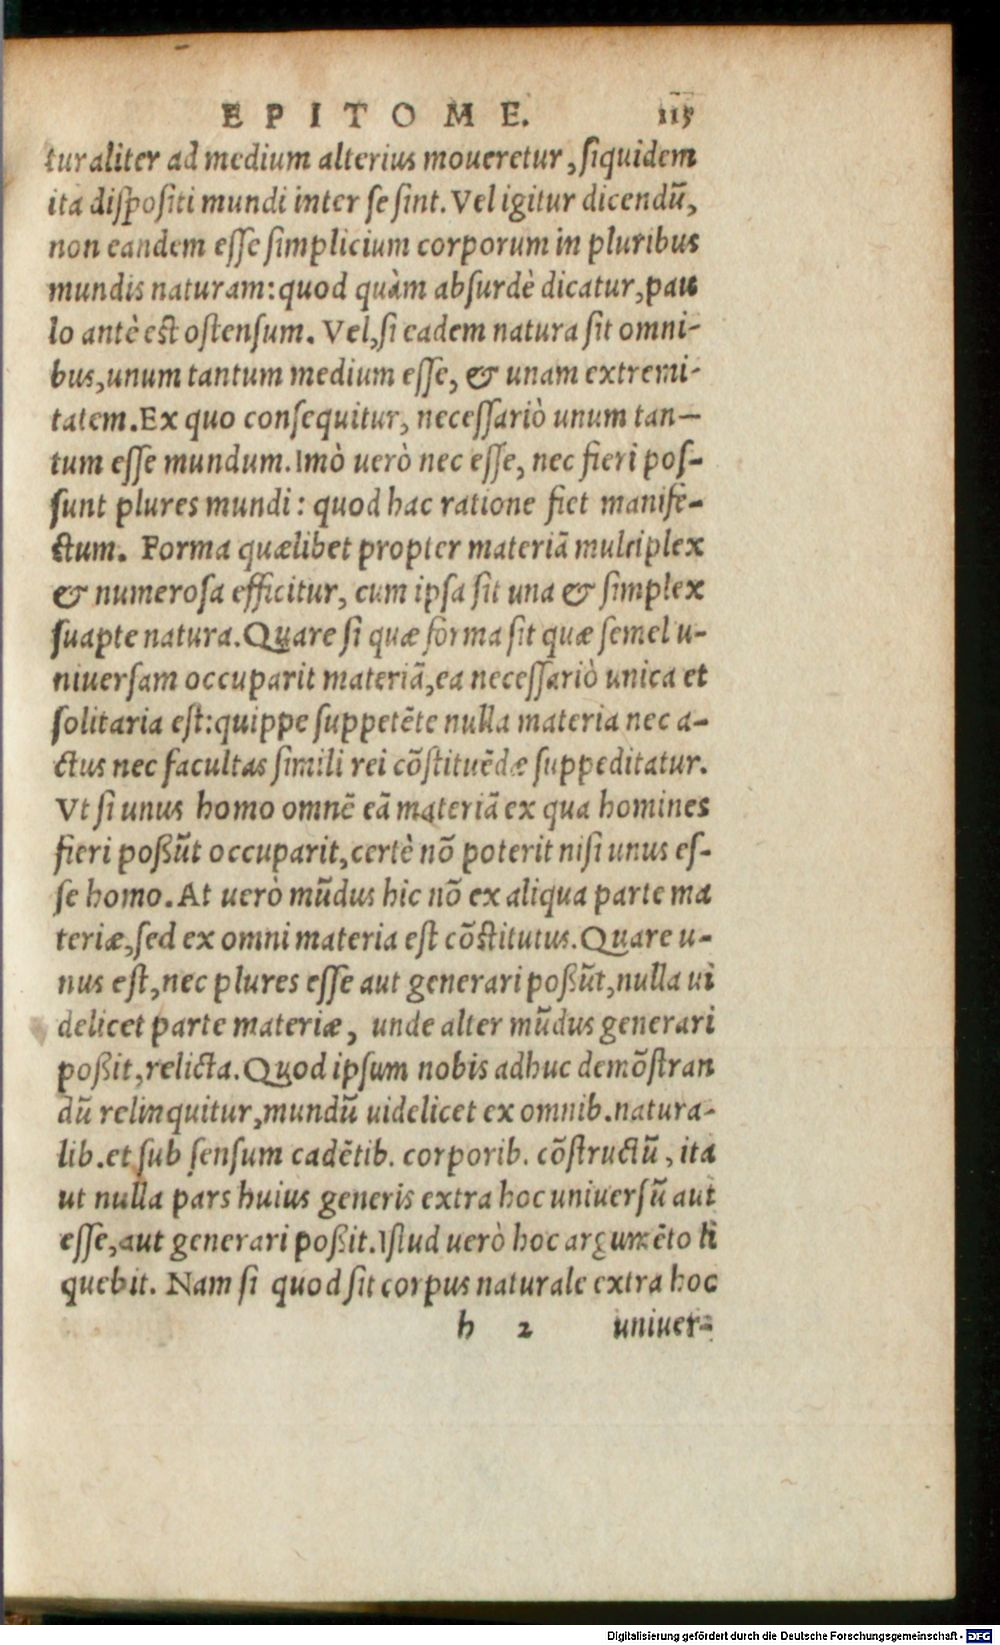 EPITOME. 115
turaliter ad medium alterius moueretur, siquidem
ita dispositi mundi inter se sint. Vel igitur dicendũ,
non eandem esse simplicium corporum in pluribus
mundis naturam: quod quàm absurdè dicatur, pau
lo antè est ostensum. Vel, si eadem natura sit omni-
bus, unum tantum medium esse, & unam extremi-
tatem. Ex quo consequitur, necessariò unum tan-
tum esse mundum. Imò uerò nec esse, nec fieri pos-
sunt plures mundi: quod hac ratione fiet manife-
ctum. Forma quælibet propter materiã multiplex
& numerosa efficitur, cum ipsa sit una & simplex
suapte natura. Quare si quæ forma sit quæ semel u-
niuersam occuparit materiã, ea necessariò unica et
solitaria est: quippe suppetẽte nulla materia nec a-
ctus nec facultas simili rei cõstituẽdæ suppeditatur.
Vt si unus homo omnẽ eã materiã ex qua homines
fieri poßũt occuparit, certè nõ poterit nisi unus es-
se homo. At uerò mũdus hic nõ ex aliqua parte ma
teriæ, sed ex omni materia est cõstitutus. Quare u-
nus est, nec plures esse aut generari poßũt, nulla ui
delicet parte materiæ, unde alter mũdus generari
poßit, relicta. Quod ipsum nobis adhuc demõstran
dũ relinquitur, mundũ uidelicet ex omnib. natura-
lib. et sub sensum cadẽtib. corporib. cõstructũ, ita
ut nulla pars huius generis extra hoc uniuersũ aut
esse, aut generari poßit. Istud uerò hoc argumẽto li
quebit. Nam si quod sit corpus naturale extra hoc
h 2 uniuer-
Digitalisierung gefördert durch die Deutsche Forschungsgemeinschaft - DFG